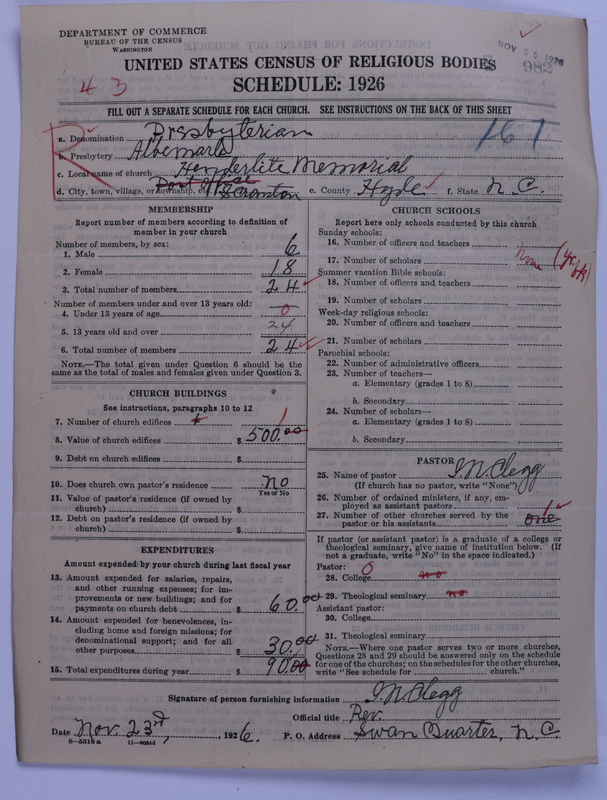 DEPARTMENT OF COMMERCE
BUREAU OF THE CENSUS
WASHINGTON
NOV 26 1926
982
UNITED STATES CENSUS OF RELIGIOUS BODIES
4 3
SCHEDULE: 1926
FILL OUT A SEPARATE SCHEDULE FOR EACH CHURCH. SEE INSTRUCTIONS ON THE BACK OF THIS SHEET
167
a. Denomination Presbyterian
b. Presbytery Albemarle
c. Local name of church Henderlite Memorial
d. City, town, village, or township, etc. Post Office Scranton e. County Hyde f. State N.C.
MEMBERSHIP
Report number of members according to definition of member in your church
Number of members, by sex:
1. Male 6
2. Female 18
3. Total number of members 24
Number of members under and over 13 years old:
4. Under 13 years of age 0
5. 13 years old and over 24
6. Total number of members 24
NOTE.—The total given under Question 6 should be the same as the total of males and females given under Question 3.
CHURCH BUILDINGS
See instructions, paragraphs 10 to 12
7. Number of church edifices 1
8. Value of church edifices $ 500.00
9. Debt on church edifices $
10. Does church own pastor's residence no
Yes or No
11. Value of pastor's residence (if owned by church) $
12. Debt on pastor's residence (if owned by church) $
EXPENDITURES
Amount expended by your church during last fiscal year
13. Amount expended for salaries, repairs, and other running expenses; for improvements or new buildings; and for payments on church debt $ 60.00
14. Amount expended for benevolences, including home and foreign missions; for denominational support; and for all other purposes $ 30.00
15. Total expenditures during year $ 90.00
CHURCH SCHOOLS
Report here only schools conducted by this church
Sunday schools:
16. Number of officers and teachers
17. Number of scholars none
Summer vacation Bible schools:
18. Number of officers and teachers
19. Number of scholars
Week-day religious schools:
20. Number of officers and teachers
21. Number of scholars
Parochial schools:
22. Number of administrative officers
23. Number of teachers—
a. Elementary (grades 1 to 8)
b. Secondary
24. Number of scholars—
a. Elementary (grades 1 to 8)
b. Secondary
PASTOR
25. Name of pastor I.N. Clegg
(If church has no pastor, write "None")
26. Number of ordained ministers, if any, employed as assistant pastors
27. Number of other churches served by the pastor or his assistants one 1
If pastor (or assistant pastor) is a graduate of a college or theological seminary, give name of institution below. (If not a graduate, write "No" in the space indicated.)
Pastor: 0
28. College no
29. Theological seminary no
Assistant pastor:
30. College
31. Theological seminary
NOTE.—Where one pastor serves two or more churches, Questions 28 and 29 should be answered only on the schedule for one of the churches; on the schedules for the other churches, write "See schedule for church."
Signature of person furnishing information I.N. Clegg
Official title Rev.
Date Nov. 23d, 1926. P. O. Address Swan Quarter, N.C.
8—5518a